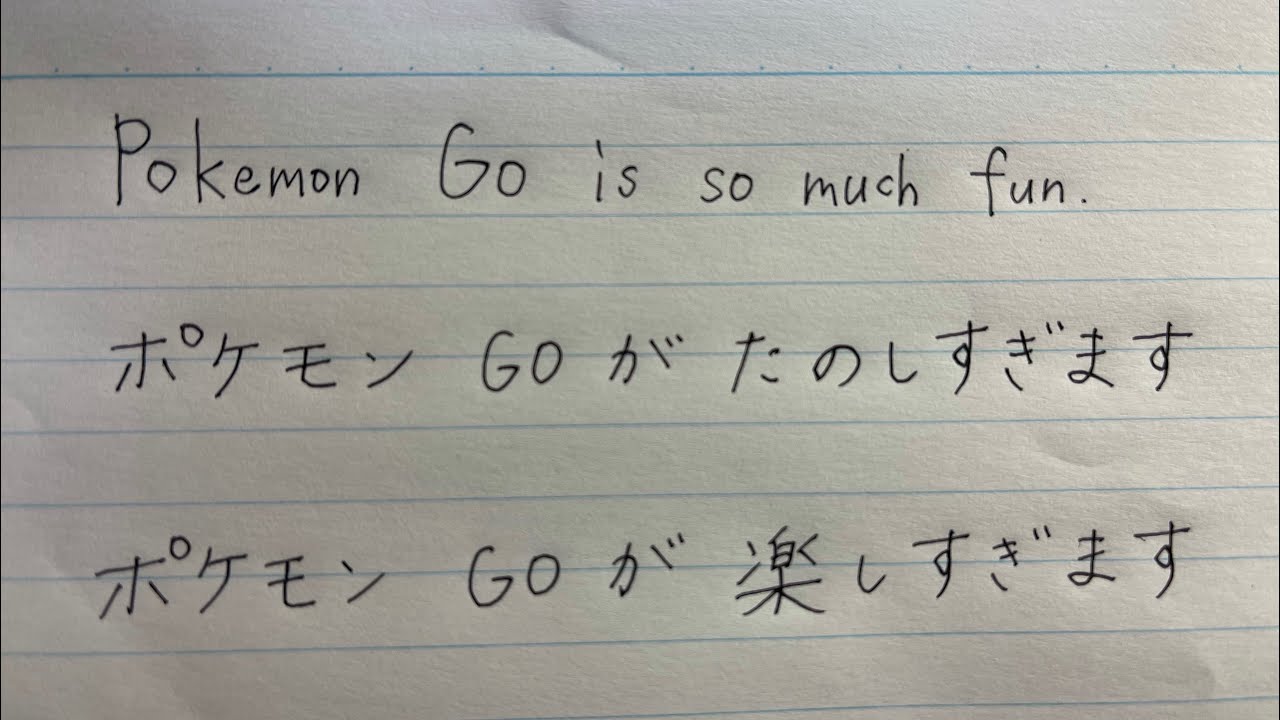 Pokemon Go is so much fun.
ポケモン GO が たのしすぎます
ポケモン GO が 楽しすぎます